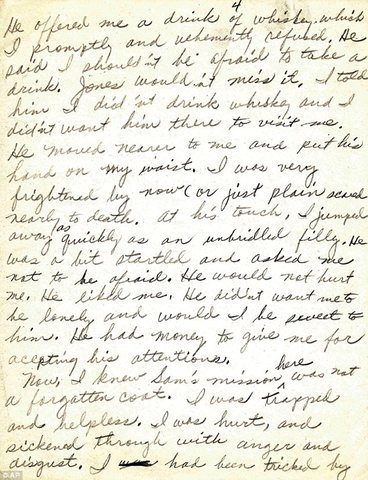 4
He offered me a drink of whiskey which
I promptly and vehemently refused. He
said I should'nt be afraid to take a
drink. Jones would'nt miss it. I told
him I did'nt drink whiskey and I
did'nt want him there to visit me.
He moved nearer to me and put his
hand on my waist. I was very
frightened by now (or just plain scared
nearly to death. At his touch, I jumped
away as quickly as an unbridled filly. He
was a bit startled and asked me
not to be afraid. He would not hurt
me. He liked me. He did'nt want me to
be lonely and would I be sweet to
him. He had money to give me for
acepting his attentions.
Now, I knew Sam's mission here was not
a forgotten coat. I was trapped
and helpless. I was hurt, and
sickened through with anger and
disgust. I had been tricked by
©AP